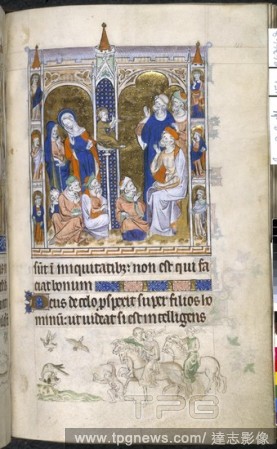 sūt ī iniquitatibȝ: non est qui fa
ciat bonum
Deus de celo ꝓspexit super filios ho
minū: ut videat si est intelligens
TPG
www.tpgnews.com / 達志影像